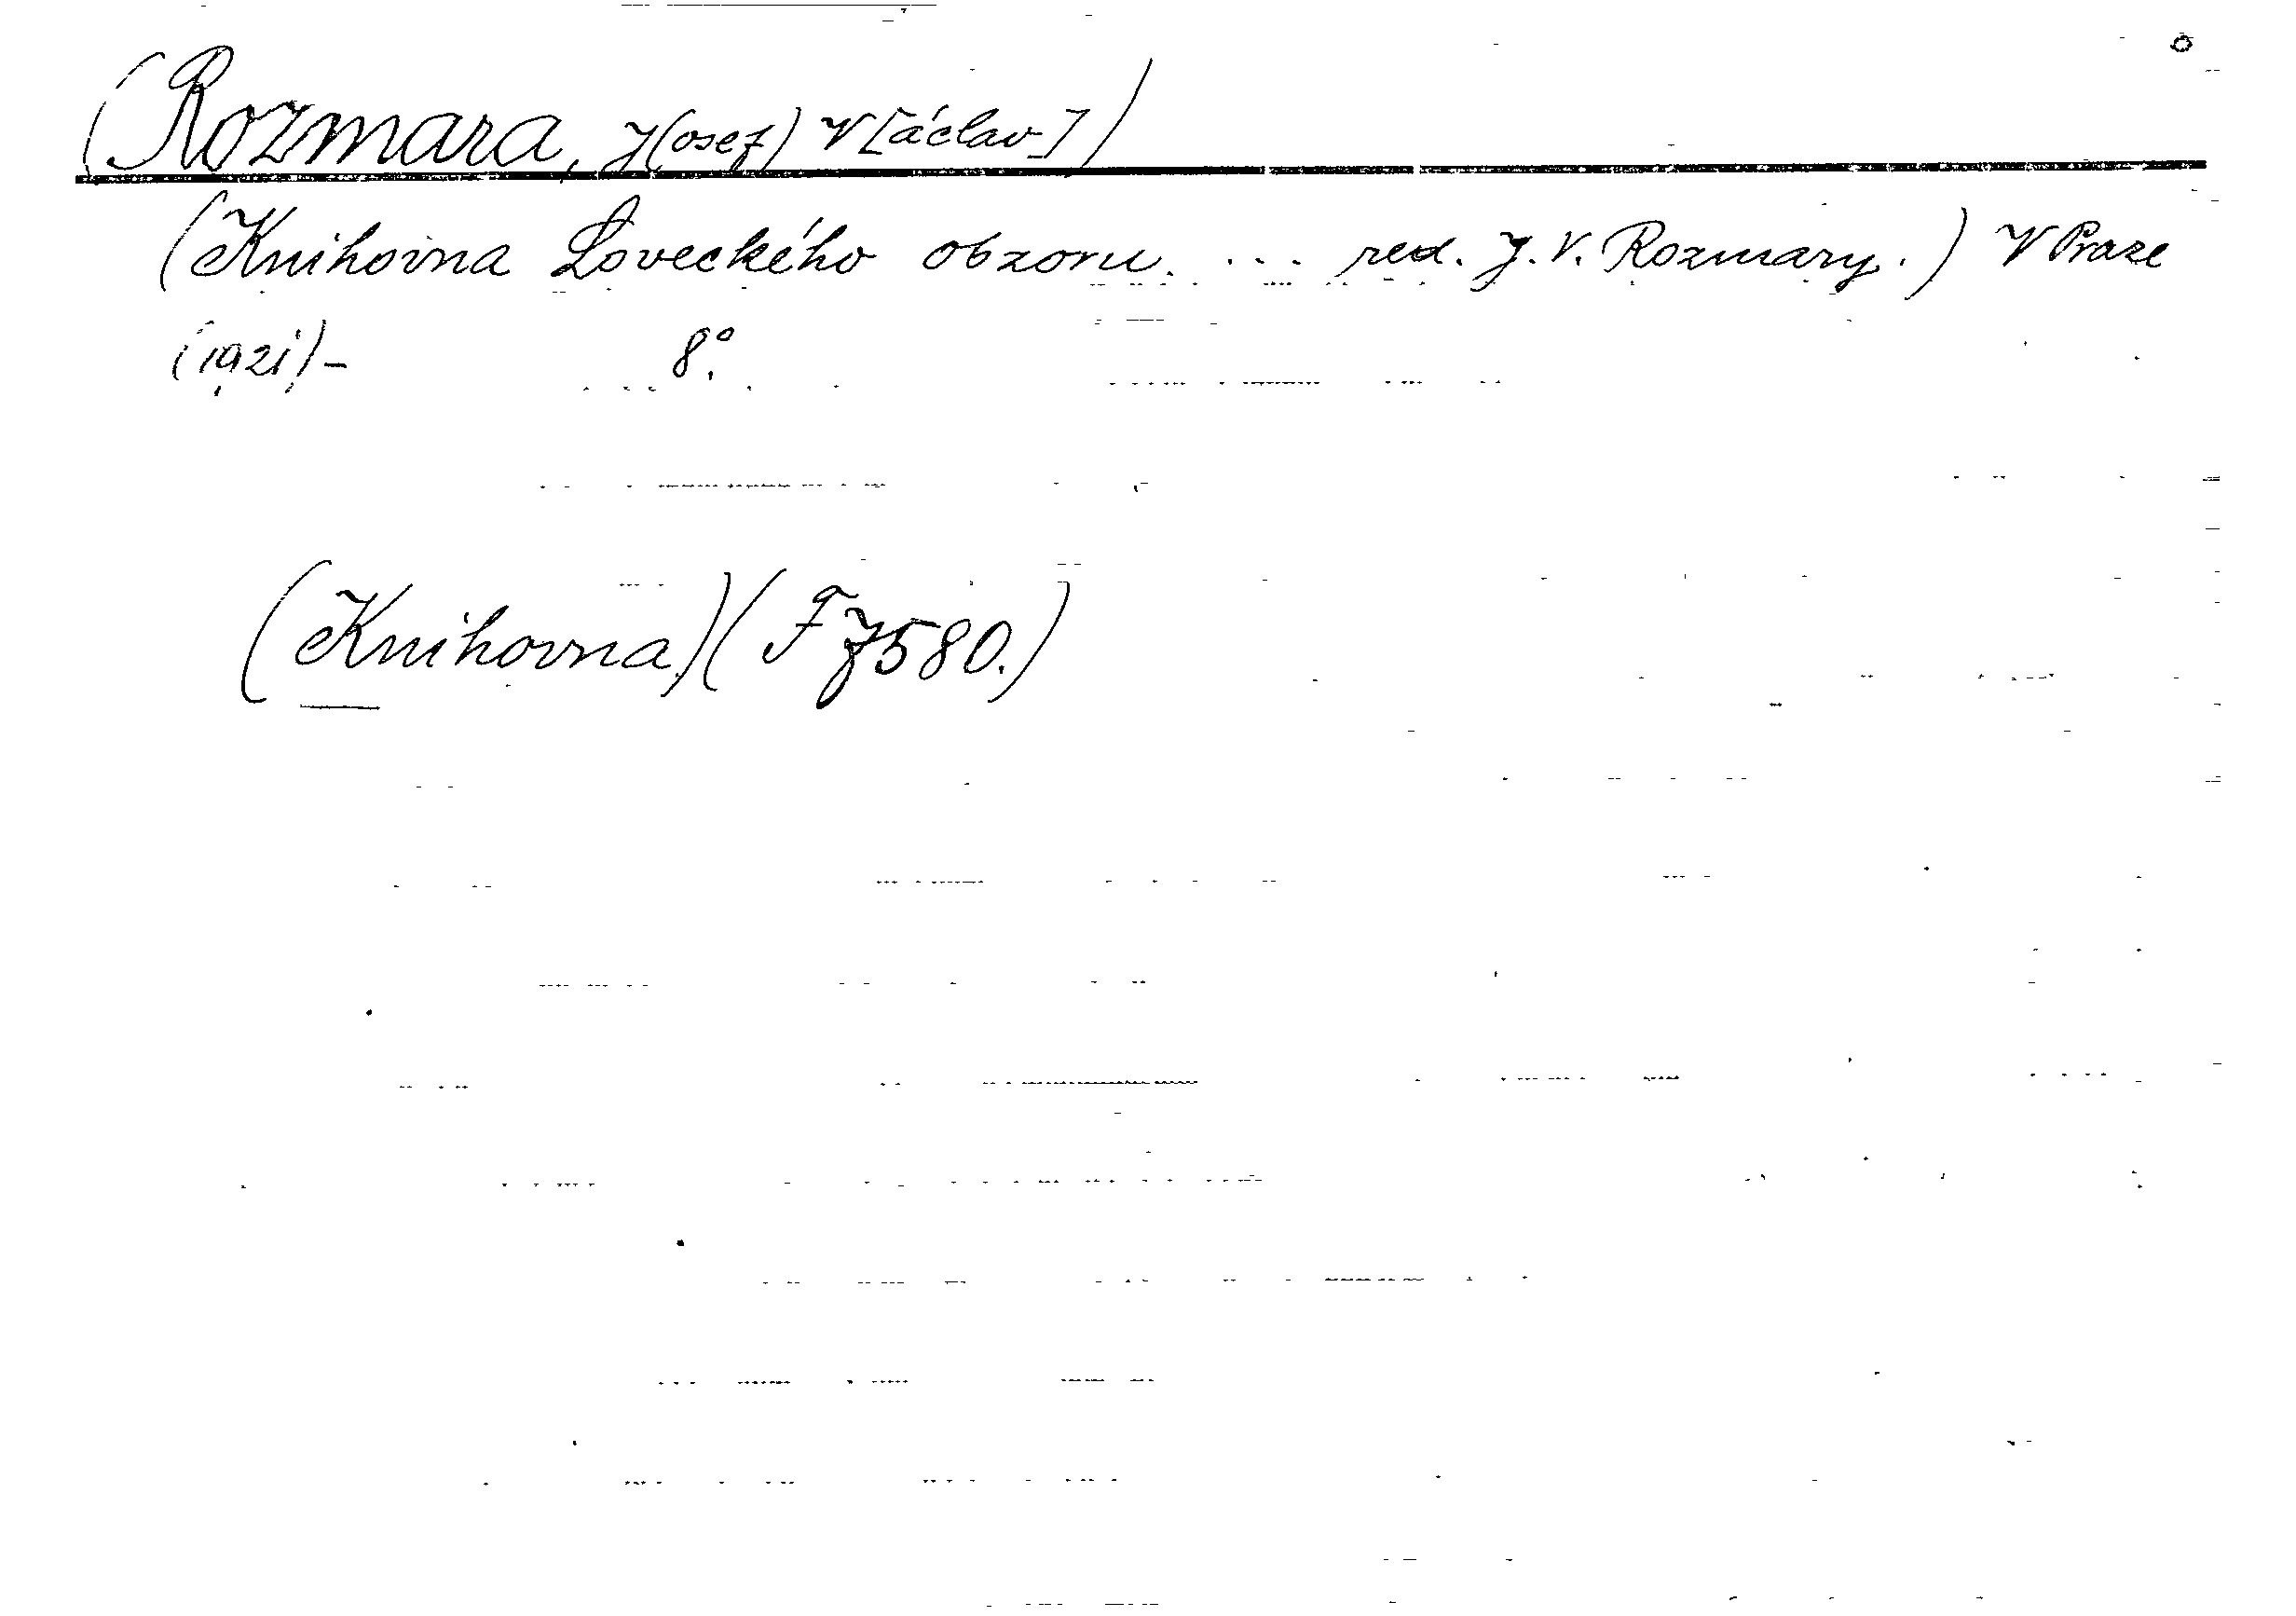 (Rozmara, J(osef) V[áclav])
(Knihovna Loveckého obzoru. ... red. J. V. Rozmary.) V Praze
(1921)- 8°.
(Knihovna)(F 7580.)